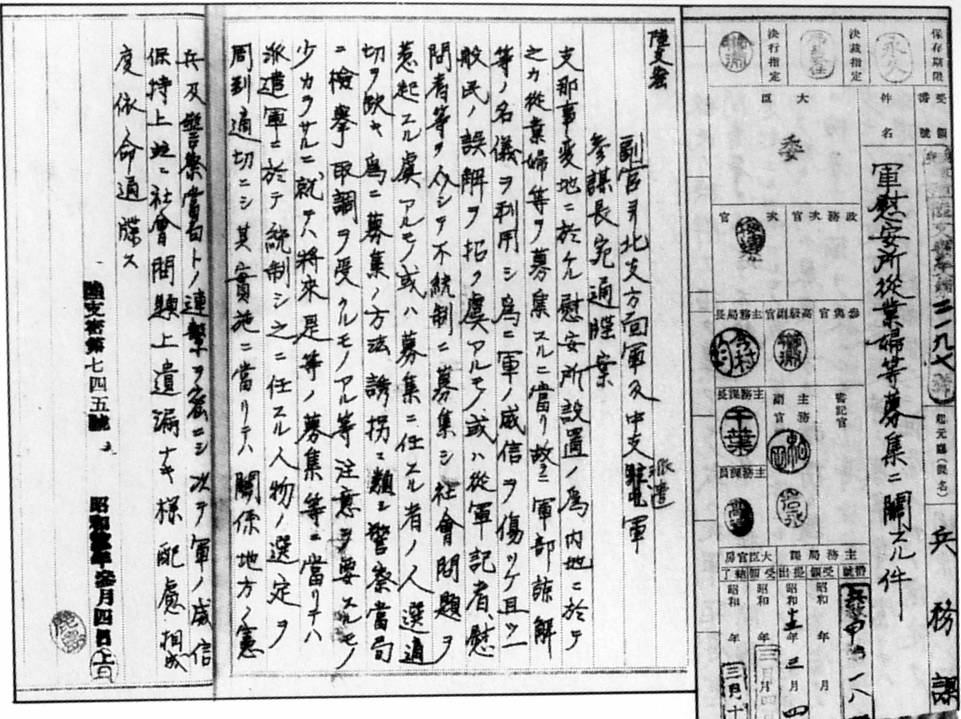 保存期限
永久
決裁指定
決行指定
受領番號
件名
軍慰安所從業婦等募集ニ關スル件
大臣
委
政務次官
次官
參與官
高級副官
主務局長
今村
主務課長
主務副官
審記官
千葉
主務課員
起元廳(課名)
兵務課
主務局課
大臣官房
昭和 年 月
昭和 年 月
三月四
昭和 年 月
三月十
陸支密
副官ヨリ北支方面軍及中支派遣軍
參謀長宛通牒案
支那事變地ニ於ケル慰安所設置ノ爲内地ニ於テ
之カ從業婦等ヲ募集スルニ當リ故ラニ軍部諒解
等ノ名儀ヲ利用シ爲ニ軍ノ威信ヲ傷ツケ且ツ一
般民ノ誤解ヲ招ク虞アルモノ或ハ從軍記者、慰
問者等ヲ介シテ不統制ニ募集シ社會問題ヲ
惹起スル虞アルモノ或ハ募集ニ任スル者ノ人選適
切ヲ缺キ爲ニ募集ノ方法誘拐ニ類シ警察當局
ニ檢擧取調ヲ受クルモノアル等注意ヲ要スルモノ
少カラサルニ就テハ將來是等ノ募集等ニ當リテハ
派遣軍ニ於テ統制シ之ニ任スル人物ノ選定ヲ
周到適切ニシ其實施ニ當リテハ關係地方ノ憲
兵及警察當局トノ連繫ヲ密ニシ次テ軍ノ威信
保持上竝ニ社會問題上遺漏ナキ樣配慮相成
度依命通牒ス
陸支密第七四五號
昭和拾參年參月四日